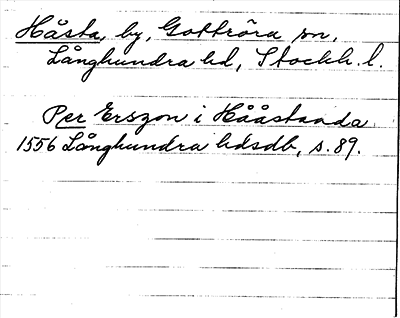 Håsta, by, Gottröra sn,
Långhundra hd, Stockh. l.
Per Erszon i Hååstaada
1556 Långhundra hdsdb, s. 89.